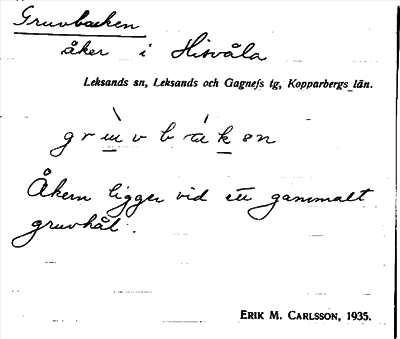 Gruvbacken
åker i Hisvåla
Leksands sn, Leksands och Gagnefs tg, Kopparbergs län.
Åkern ligger vid ett gammalt
gruvhål.
ERIK M. CARLSSON, 1935.